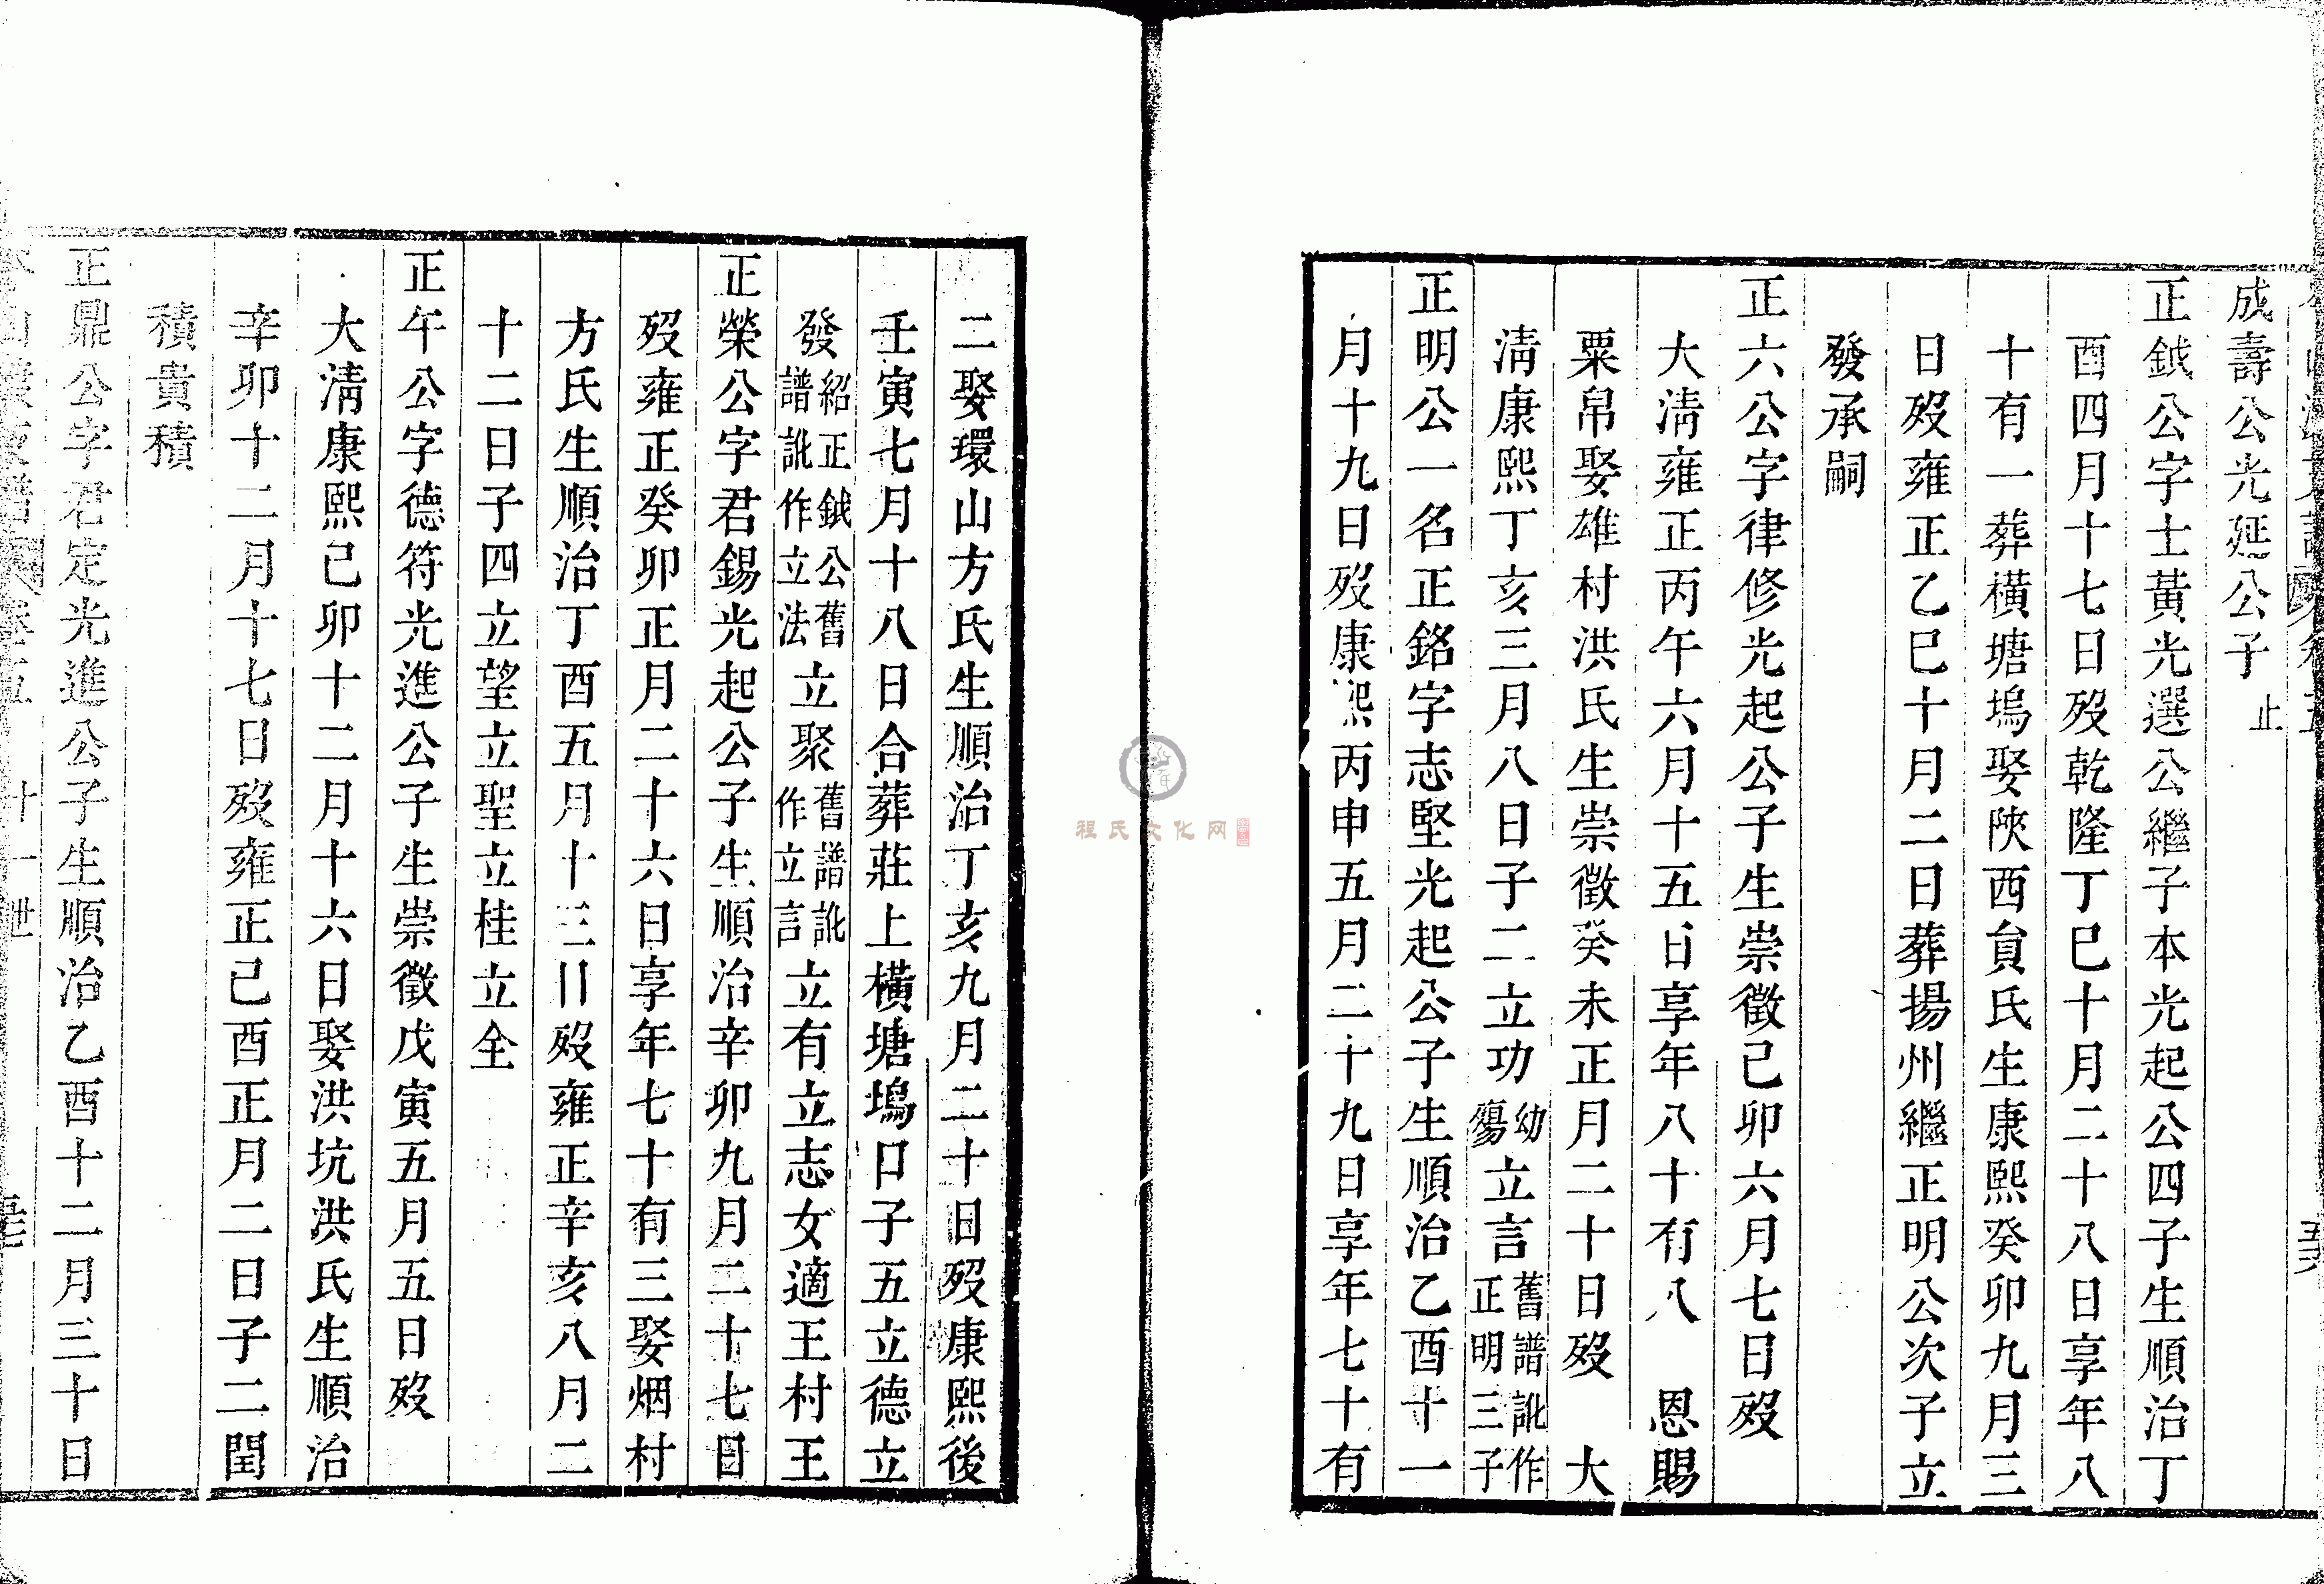 成壽公光延公子止
正鉞公字士黃光選公繼子本光起公四子生順治丁
酉四月十七日歿乾隆丁巳十月二十八日享年八
十有一葬橫塘塢娶陝西貟氏生康熙癸卯九月三
日歿雍正乙巳十月二日葬揚州繼正明公次子立
發承嗣
正六公字律修光起公子生崇徵己卯六月七日歿
大淸雍正丙午六月十五日享年八十有八　恩賜
粟帛娶雄村洪氏生崇徵癸未正月二十日歿　大
淸康熙丁亥三月八日子二立功幼殤立言舊譜訛作正明三子
正明公一名正銘字志堅光起公子生順治乙酉十一
月十九日歿康熙丙申五月二十九日享年七十有
二娶環山方氏生順治丁亥九月二十日歿康熙後
壬寅七月十八日合葬莊上橫塘塢口子五立德立
發紹正鉞公舊譜訛作立法立聚舊譜訛作立言立有立志女適王村王
正榮公字君錫光起公子生順治辛卯九月二十七日
歿雍正癸卯正月二十六日享年七十有三娶烟村
方氏生順治丁酉五月十三日歿雍正辛亥八月二
十二日子四立望立聖立桂立全
正午公字德符光進公子生崇徵戊寅五月五日歿
大淸康熙己卯十二月十六日娶洪坑洪氏生順治
辛卯十二月十七日歿雍正己酉正月二日子二閏
積貴積
正鼎公字君定光進公子生順治乙酉十二月三十日
卷五 十一世
程氏文化网